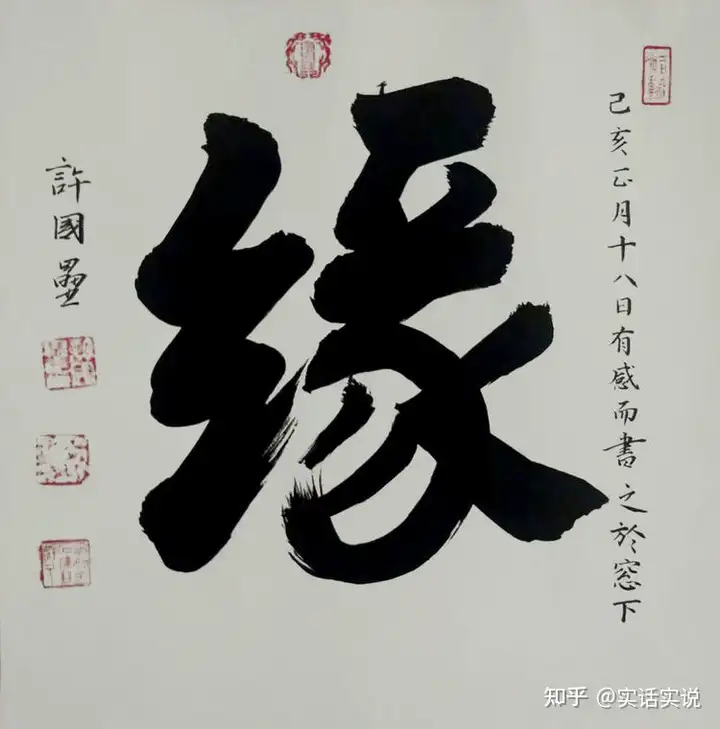 己亥正月十八日有感而書之於窓下
緣
許國壘
知乎 @实话实说